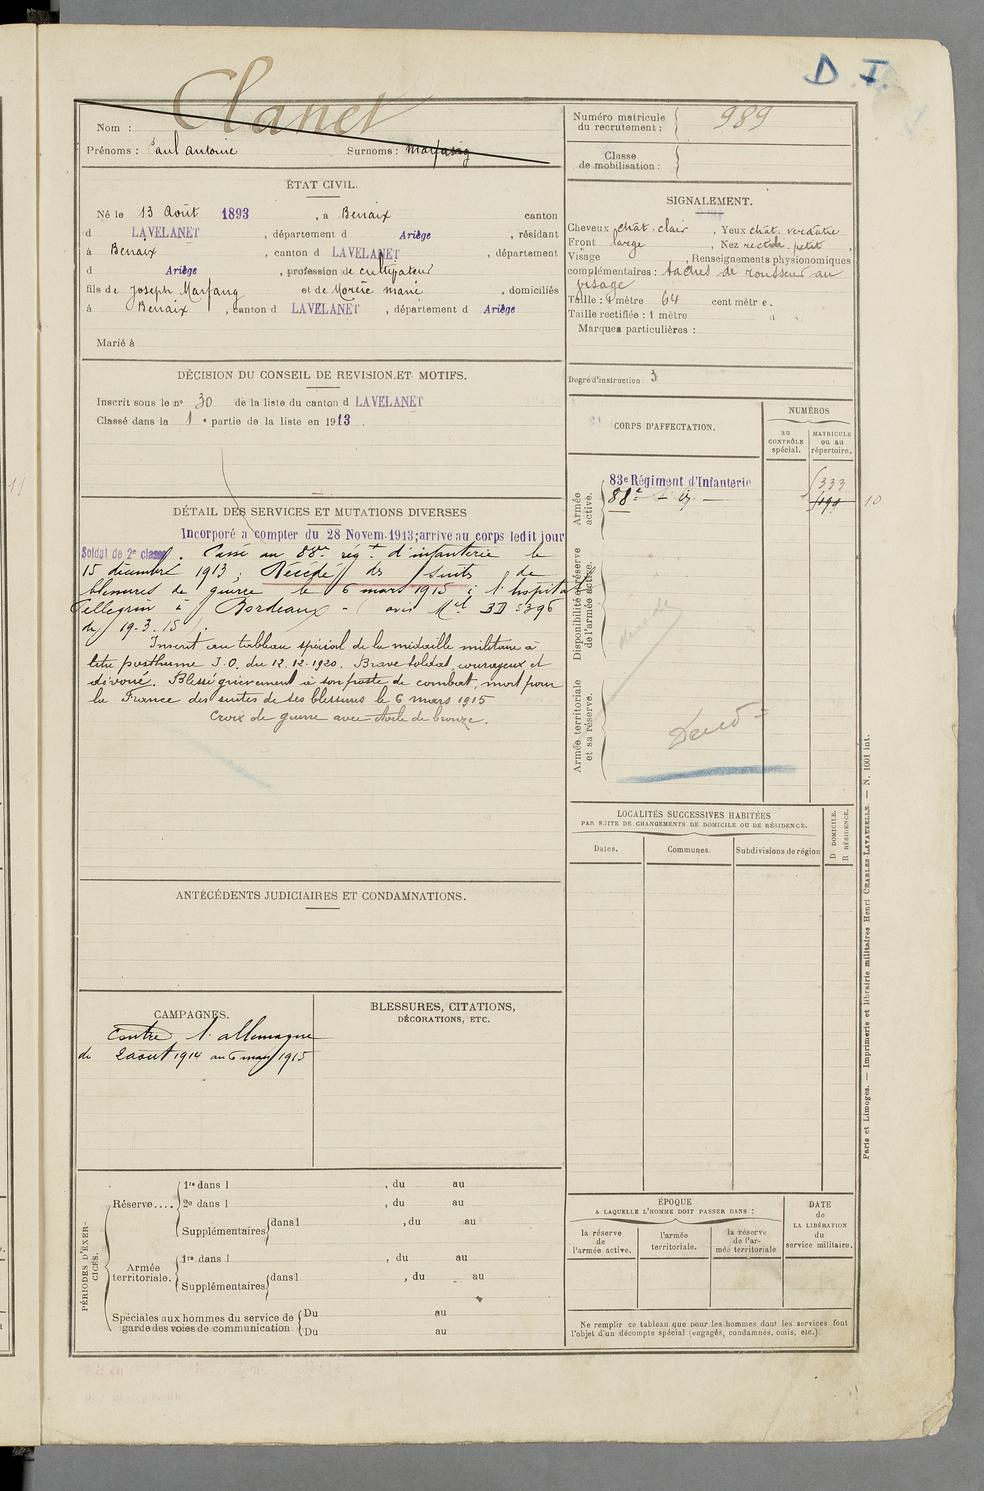 D. I.
Clanet
Nom :
Prénoms : Paul Antoine Surnoms : Marfaing
Numéro matricule du recrutement : 989
Classe de mobilisation :
ÉTAT CIVIL.
Né le 13 Août 1893, à Benaix canton
d LAVELANET, département d Ariège, résidant
à Benaix, canton d LAVELANET, département
d Ariège, profession de cultivateur
fils de Joseph Marfaing et de Morère marie, domiciliés
à Benaix, canton d LAVELANET, département d Ariège
Marié à
SIGNALEMENT.
Cheveux chât. clair, Yeux chât. verdâtre
Front large, Nez rectil. petit,
Visage , Renseignements physionomiques
complémentaires : taches de rousseur au
visage
Taille : 1 mètre 64 centimètre.
Taille rectifiée : 1 mètre
Marques particulières :
Degré d'instruction : 3
DÉCISION DU CONSEIL DE REVISION ET MOTIFS.
Inscrit sous le n° 30 de la liste du canton d LAVELANET
Classé dans la 1e partie de la liste en 1913.
DÉTAIL DES SERVICES ET MUTATIONS DIVERSES
Incorporé a compter du 28 Novem. 1913; arrive au corps ledit jour
Soldat de 2e classe. Passé au 88me régt d'infanterie le
15 décembre 1913; Décédé des suites de
blessures de guerre le 6 mars 1915 à l'hopital
Pellegrin à Bordeaux - (avis Mel 3D 5396
du 19-3-15).
Inscrit au tableau spécial de la médaille militaire à
titre posthume J.O. du 12.12.1920. Brave soldat, courageux et
dévoué. Blessé grièvement à son poste de combat, mort pour
la France des suites de ses blessures le 6 mars 1915
Croix de guerre avec étoile de bronze.
CORPS D'AFFECTATION.
NUMÉROS
au CONTRÔLE spécial.
MATRICULE ou au répertoire.
Armée active.
83e Régiment d'Infanterie 333
88e - d° -
10
Disponibilité et réserve de l'armée active.
décédé
Armée territoriale et sa réserve.
Décédé
LOCALITÉS SUCCESSIVES HABITÉES
PAR SUITE DE CHANGEMENTS DE DOMICILE OU DE RÉSIDENCE.
Dates. Communes. Subdivisions de région
D DOMICILE.
R RÉSIDENCE.
ANTÉCÉDENTS JUDICIAIRES ET CONDAMNATIONS.
CAMPAGNES.
Contre l'allemagne
du 2 aout 1914 au 6 mars 1915
BLESSURES, CITATIONS,
DÉCORATIONS, ETC.
PÉRIODES D'EXERCICES.
Réserve.... 1re dans l , du au
2e dans l , du au
Supplémentaires dans l , du au
Armée territoriale. 1re dans l , du au
Supplémentaires dans l , du au
Spéciales aux hommes du service de Du au
garde des voies de communication Du au
ÉPOQUE
A LAQUELLE L'HOMME DOIT PASSER DANS :
la réserve de l'armée active.
l'armée territoriale.
la réserve de l'armée territoriale
DATE
de
LA LIBÉRATION
du
service militaire.
Ne remplir ce tableau que pour les hommes dont les services font
l'objet d'un décompte spécial (engagés, condamnés, omis, etc.)
Paris et Limoges. — Imprimerie et librairie militaires Henri CHARLES-LAVAUZELLE. — N. 1001 int.